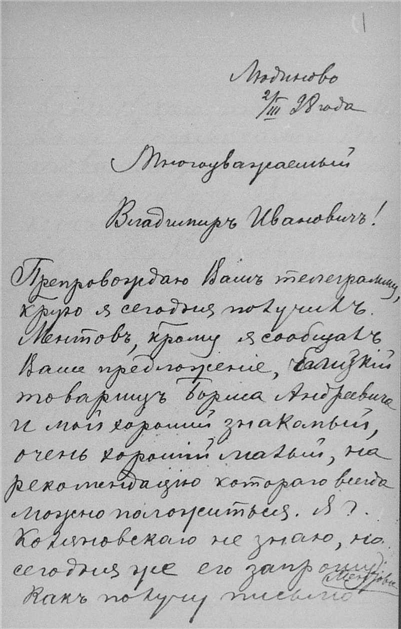 1
Людиново
2/III 98 года
Многоуважаемый
Владимиръ Ивановичъ!
Препровождаю Вамъ телеграмму,
крую я сегодня получилъ.
Ментовъ, крому я сообщалъ
Ваше предложеніе, близкій
товарищъ Бориса Андреевича
и мой хорошій знакомый,
очень хорошій малый, на
рекомендацію котораго всегда
можно положиться. Я г.
Коляновскаго не знаю, но
сегодня же его запрошу
Какъ получу письмо